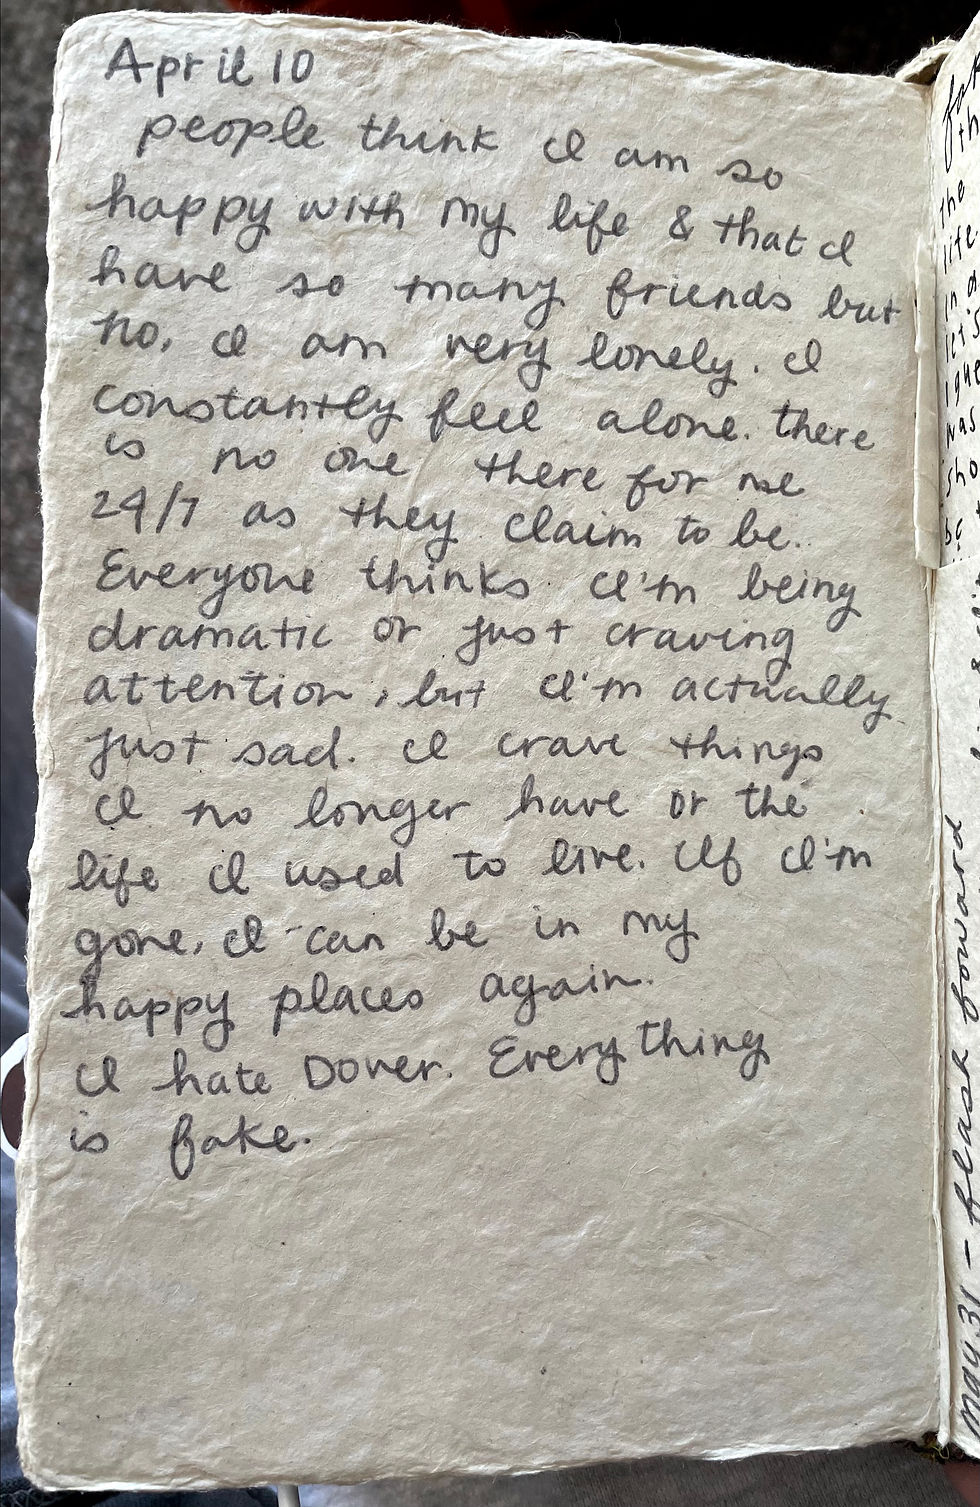 April 10
people think I am so
happy with my life & that I
have so many friends but
no, I am very lonely. I
constantly feel alone. there
is no one there for me
24/7 as they claim to be.
Everyone thinks I'm being
dramatic or just craving
attention, but I'm actually
just sad. I crave things
I no longer have or the
life I used to live. If I'm
gone, I can be in my
happy places again.
I hate Dover. Everything
is fake.
the
life
was
may 31 – flash forward